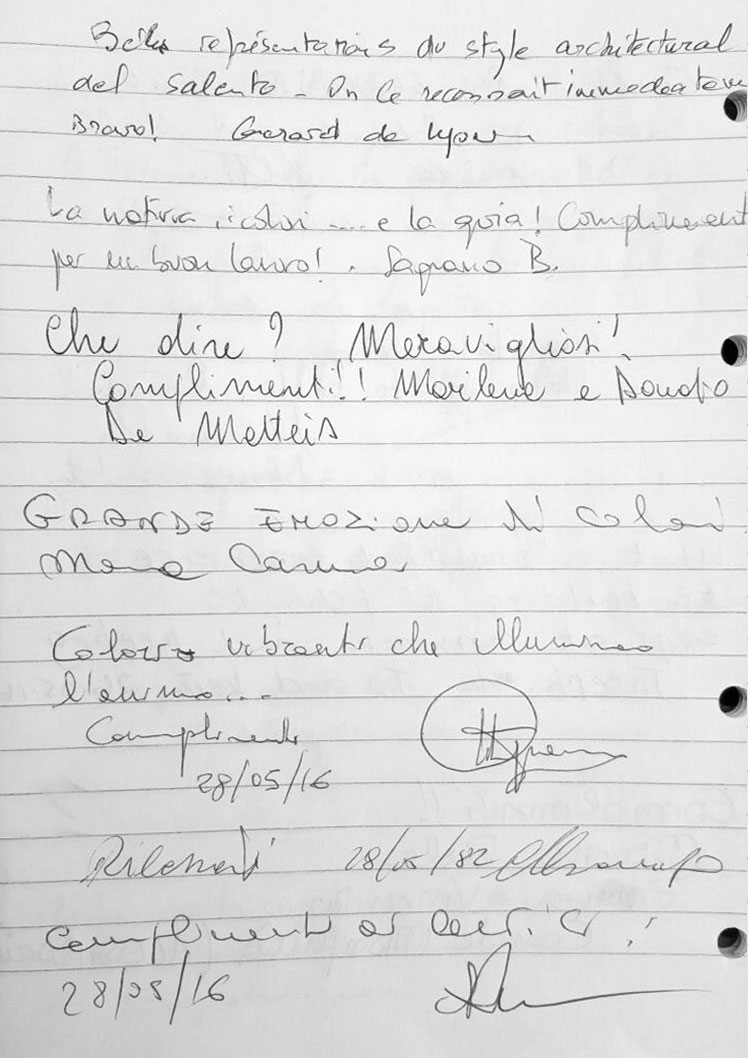 Belles représentations du style architectural
del Salento - On le reconnait immediatem
Bravo! Gerard de Lyon
La natura i colori .... e la gioia! Compliment
per un buon lavoro! . B.
Che dire? Meravigliosi!
Complimenti!! Marilena e Donato
De Matteis
GRANDE EMOZione di Colori
Colori vibranti che illuminano
l'animo...
Complimenti
28/05/16
Rilassanti 28/05/82
Complimenti
28/08/16